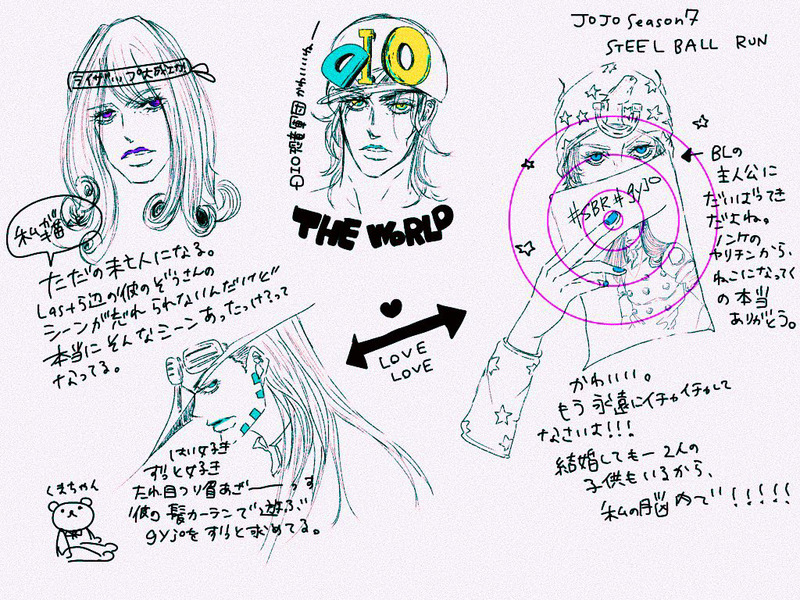 JOJO Season7
STEEL BALL RUN
ライザップ大成功
DIO
DIO親衛隊団
かわいいねー
THE WORLD
私が
ただの未亡人になる。
Last5辺の彼のぞうさんの
シーンが忘れられないんだけど
本当にそんなシーンあったっけ?って
なってる。
#SBR#gyjo
BLの
主人公に
だいばってき
だよね。
ノンケの
ヤリチンから、
ねこになってく
の本当
ありがとう。
LOVE
LOVE
かわいい。
もう永遠にイチャイチャして
なさいよ!!!
結婚しても一2人の
子供もいるから、
私の脳内で!!!!!
はい好き
ずっと好き
たれ目つり眉あざーーっす
彼の髪カーランで遊ぶ
gyjoをずっと求めてる。
くまちゃん